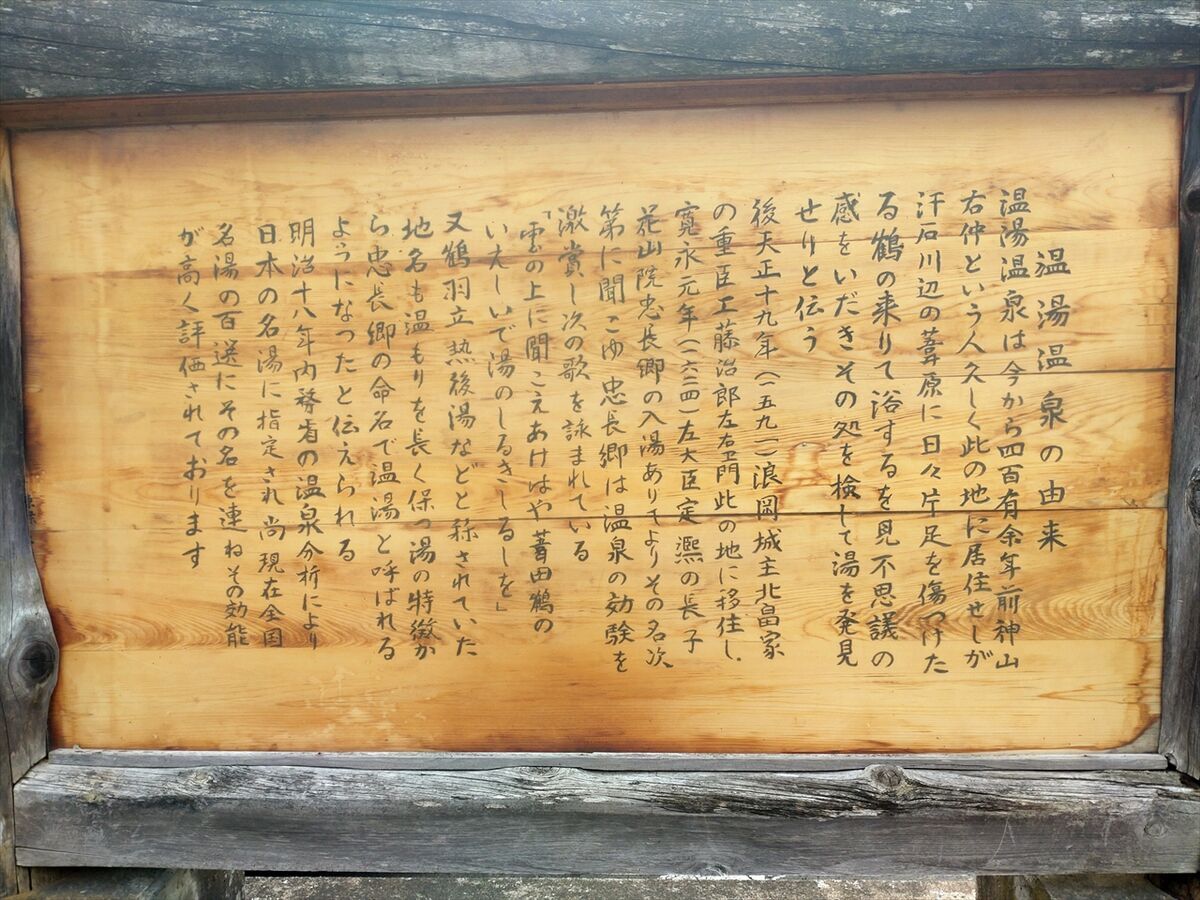 温湯温泉の由来
温湯温泉は今から四百有余年前神山
右仲という人久しく此の地に居住せしが
汗石川辺の葦原に日々片足を傷つけた
る鶴の来りて浴するを見不思議の
感をいだきその処を検して湯を発見
せりと伝う
後天正十九年(一五九一)浪岡城主北畠家
の重臣工藤治郎左右ヱ門此の地に移住し、
寛永元年(一六二四)左大臣定熈の長子
花山院忠長郷の入湯ありてよりその名次
第に聞こゆ忠長郷は温泉の効験を
激賞し次の歌を詠まれている
「雲の上に聞こえあけはや蒼田鶴の
いえしいで湯のしるきしるしを」
又鶴羽立熱後湯などと称されていた
地名も温もりを長く保つ湯の特徴か
ら忠長郷の命名で温湯と呼ばれる
ようになったと伝えられる
明治十八年内務省の温泉分析により
日本の名湯に指定され尚現在全国
名湯の百選にその名を連ねその効能
が高く評価されております